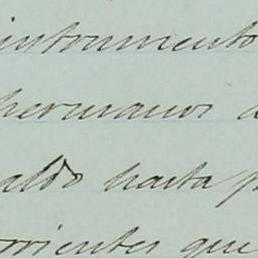 instrumento
hermanos
aldo hasta p
rrientes que